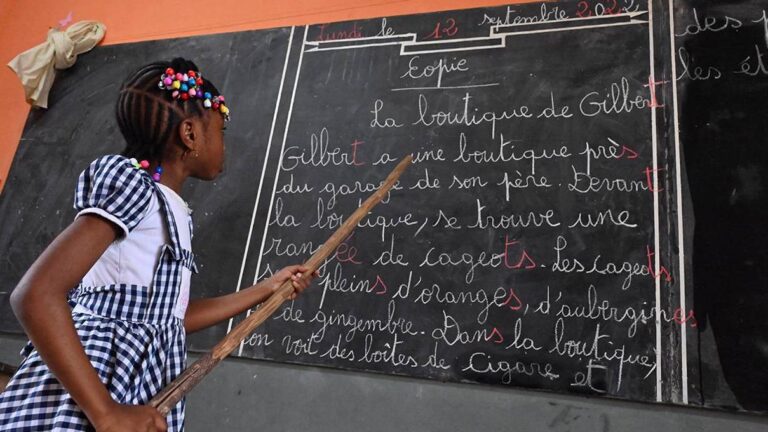 Lundi le 12 septembre 2022
Copie
La boutique de Gilbert
Gilbert a une boutique près
du garage de son père. Devant
la boutique, se trouve une
rangée de cageots. Les cageots
sont pleins d'oranges, d'aubergines
de gingembre. Dans la boutique,
on voit des boîtes de cigare et
des p
les ét